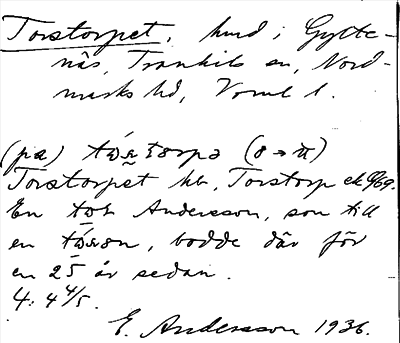 Torstorpet, hmd i Gylte-
näs, Trankils sn, Nord-
marks hd, Vrml l.
(pa)
Torstorpet hr, Torstorp ek
En Andersson, son till
en, bodde där för
en 25 år sedan.
4: 4 4/5.
E. Andersson 1936.